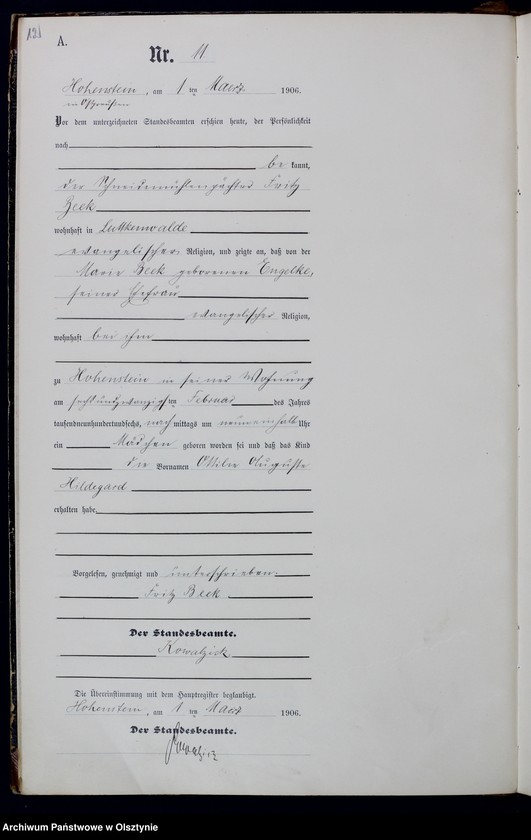 121
A.
Nr. 11
Hohenstein, am 1 ten März 1906.
in Ostpreußen
Vor dem unterzeichneten Standesbeamten erschien heute, der Persönlichkeit
nach
be kannt,
der Schneidemühlenpächter Fritz
Beck
wohnhaft in Luttkenwalde
evangelischer Religion, und zeigte an, daß von der
Marie Beck geborenen Engelke,
seiner Ehefrau
evangelischer Religion,
wohnhaft bei ihm
zu Hohenstein in seiner Wohnung
am sechsundzwanzigsten Februar des Jahres
tausendneunhundertundsechs, nachmittags um neuneinhalb Uhr
ein Mädchen geboren worden sei und daß das Kind
die Vornamen Ottilie Auguste
Hildegard
erhalten habe
Vorgelesen, genehmigt und unterschrieben.
Fritz Beck
Der Standesbeamte.
Kowalzick
Die Übereinstimmung mit dem Hauptregister beglaubigt.
Hohenstein, am 1 ten März 1906.
Der Standesbeamte.
Archiwum Państwowe w Olsztynie